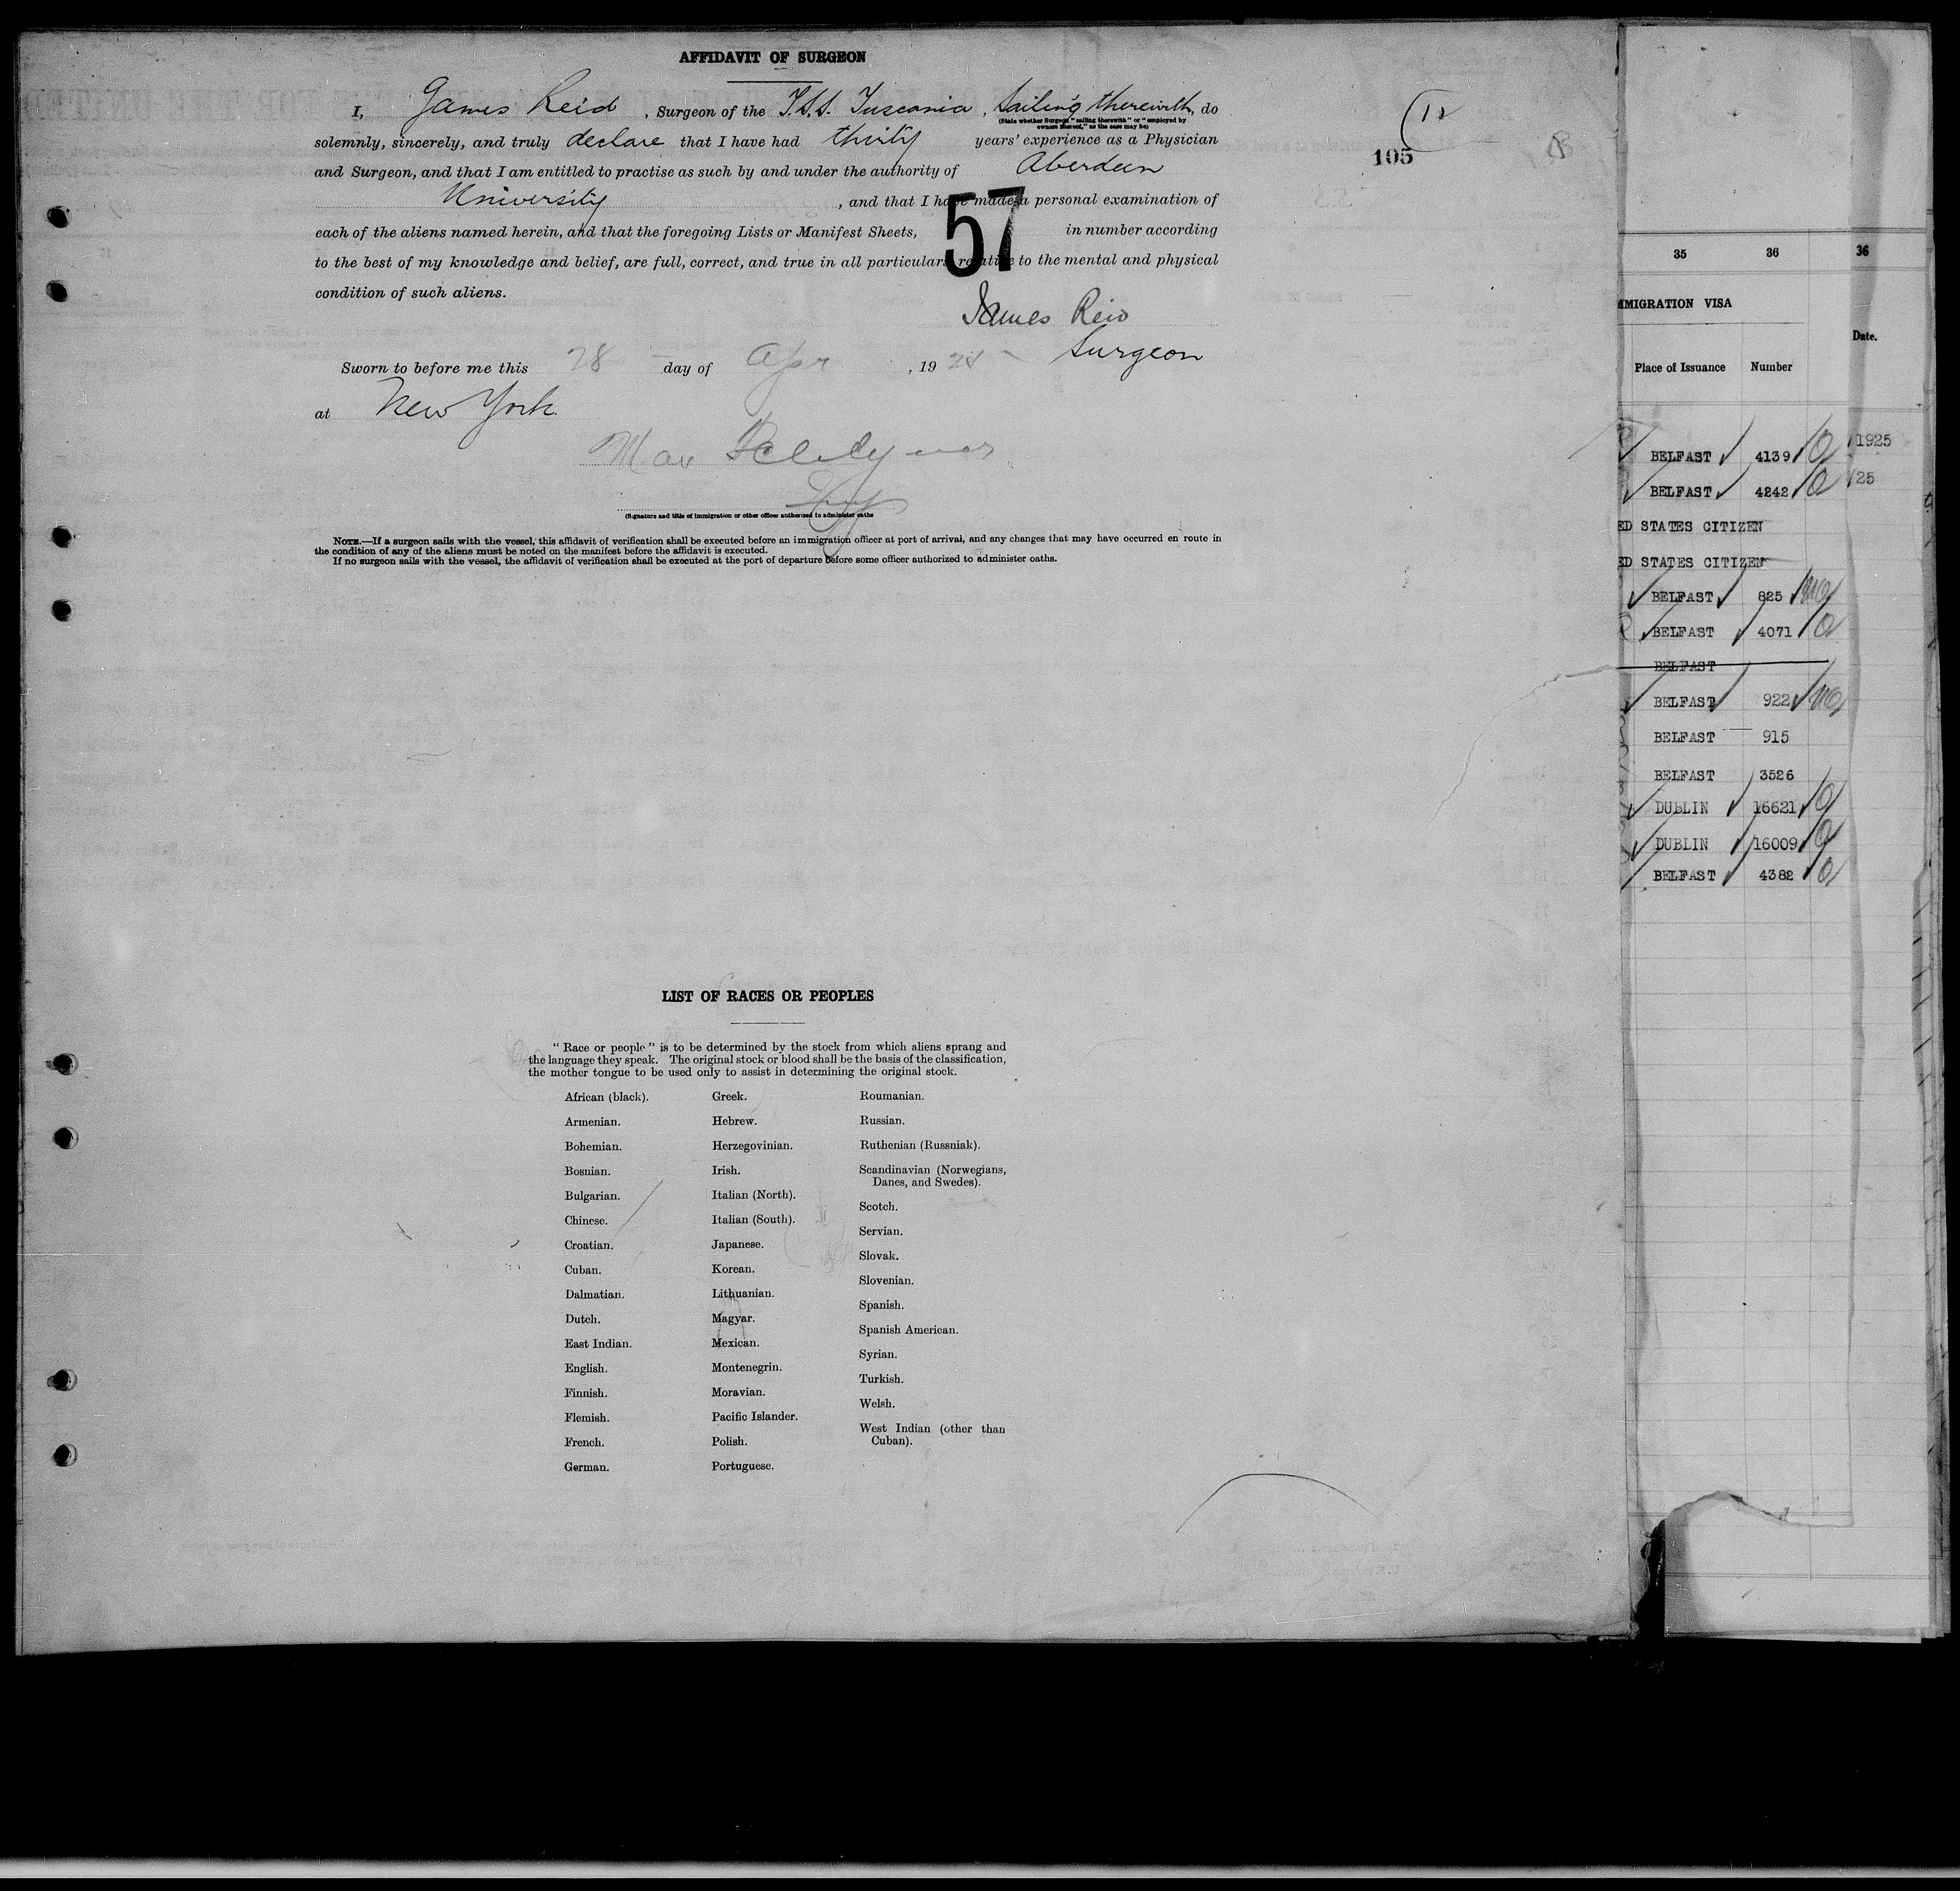 AFFIDAVIT OF SURGEON
I, James Reid, Surgeon of the T.S.S. Tuscania, Sailing therewith, do
(State whether Surgeon "sailing therewith" or "employed by
owners thereof," as the case may be)
solemnly, sincerely, and truly declare that I have had thirty years' experience as a Physician
and Surgeon, and that I am entitled to practise as such by and under the authority of Aberdeen
University, and that I have made a personal examination of
each of the aliens named herein, and that the foregoing Lists or Manifest Sheets, 57 in number according
to the best of my knowledge and belief, are full, correct, and true in all particulars relative to the mental and physical
condition of such aliens.
James Reid
Surgeon
Sworn to before me this 28 day of Apr, 19
at New York
Max
(Signature and title of immigration or other officer authorized to administer oaths
NOTE.—If a surgeon sails with the vessel, this affidavit of verification shall be executed before an immigration officer at port of arrival, and any changes that may have occurred en route in
the condition of any of the aliens must be noted on the manifest before the affidavit is executed.
If no surgeon sails with the vessel, the affidavit of verification shall be executed at the port of departure before some officer authorized to administer oaths.
105
LIST OF RACES OR PEOPLES
"Race or people" is to be determined by the stock from which aliens sprang and
the language they speak. The original stock or blood shall be the basis of the classification,
the mother tongue to be used only to assist in determining the original stock.
African (black).
Armenian.
Bohemian.
Bosnian.
Bulgarian.
Chinese.
Croatian.
Cuban.
Dalmatian.
Dutch.
East Indian.
English.
Finnish.
Flemish.
French.
German.
Greek.
Hebrew.
Herzegovinian.
Irish.
Italian (North).
Italian (South).
Japanese.
Korean.
Lithuanian.
Magyar.
Mexican.
Montenegrin.
Moravian.
Pacific Islander.
Polish.
Portuguese.
Roumanian.
Russian.
Ruthenian (Russniak).
Scandinavian (Norwegians,
Danes, and Swedes).
Scotch.
Servian.
Slovak.
Slovenian.
Spanish.
Spanish American.
Syrian.
Turkish.
Welsh.
West Indian (other than
Cuban).
35 36 36
MMIGRATION VISA
Date.
Place of Issuance Number
BELFAST 4139 1925
BELFAST 4242 25
ED STATES CITIZEN
ED STATES CITIZEN
BELFAST 825
BELFAST 4071
BELFAST
BELFAST 922
BELFAST 915
BELFAST 3526
DUBLIN 16621
DUBLIN 16009
BELFAST 4382